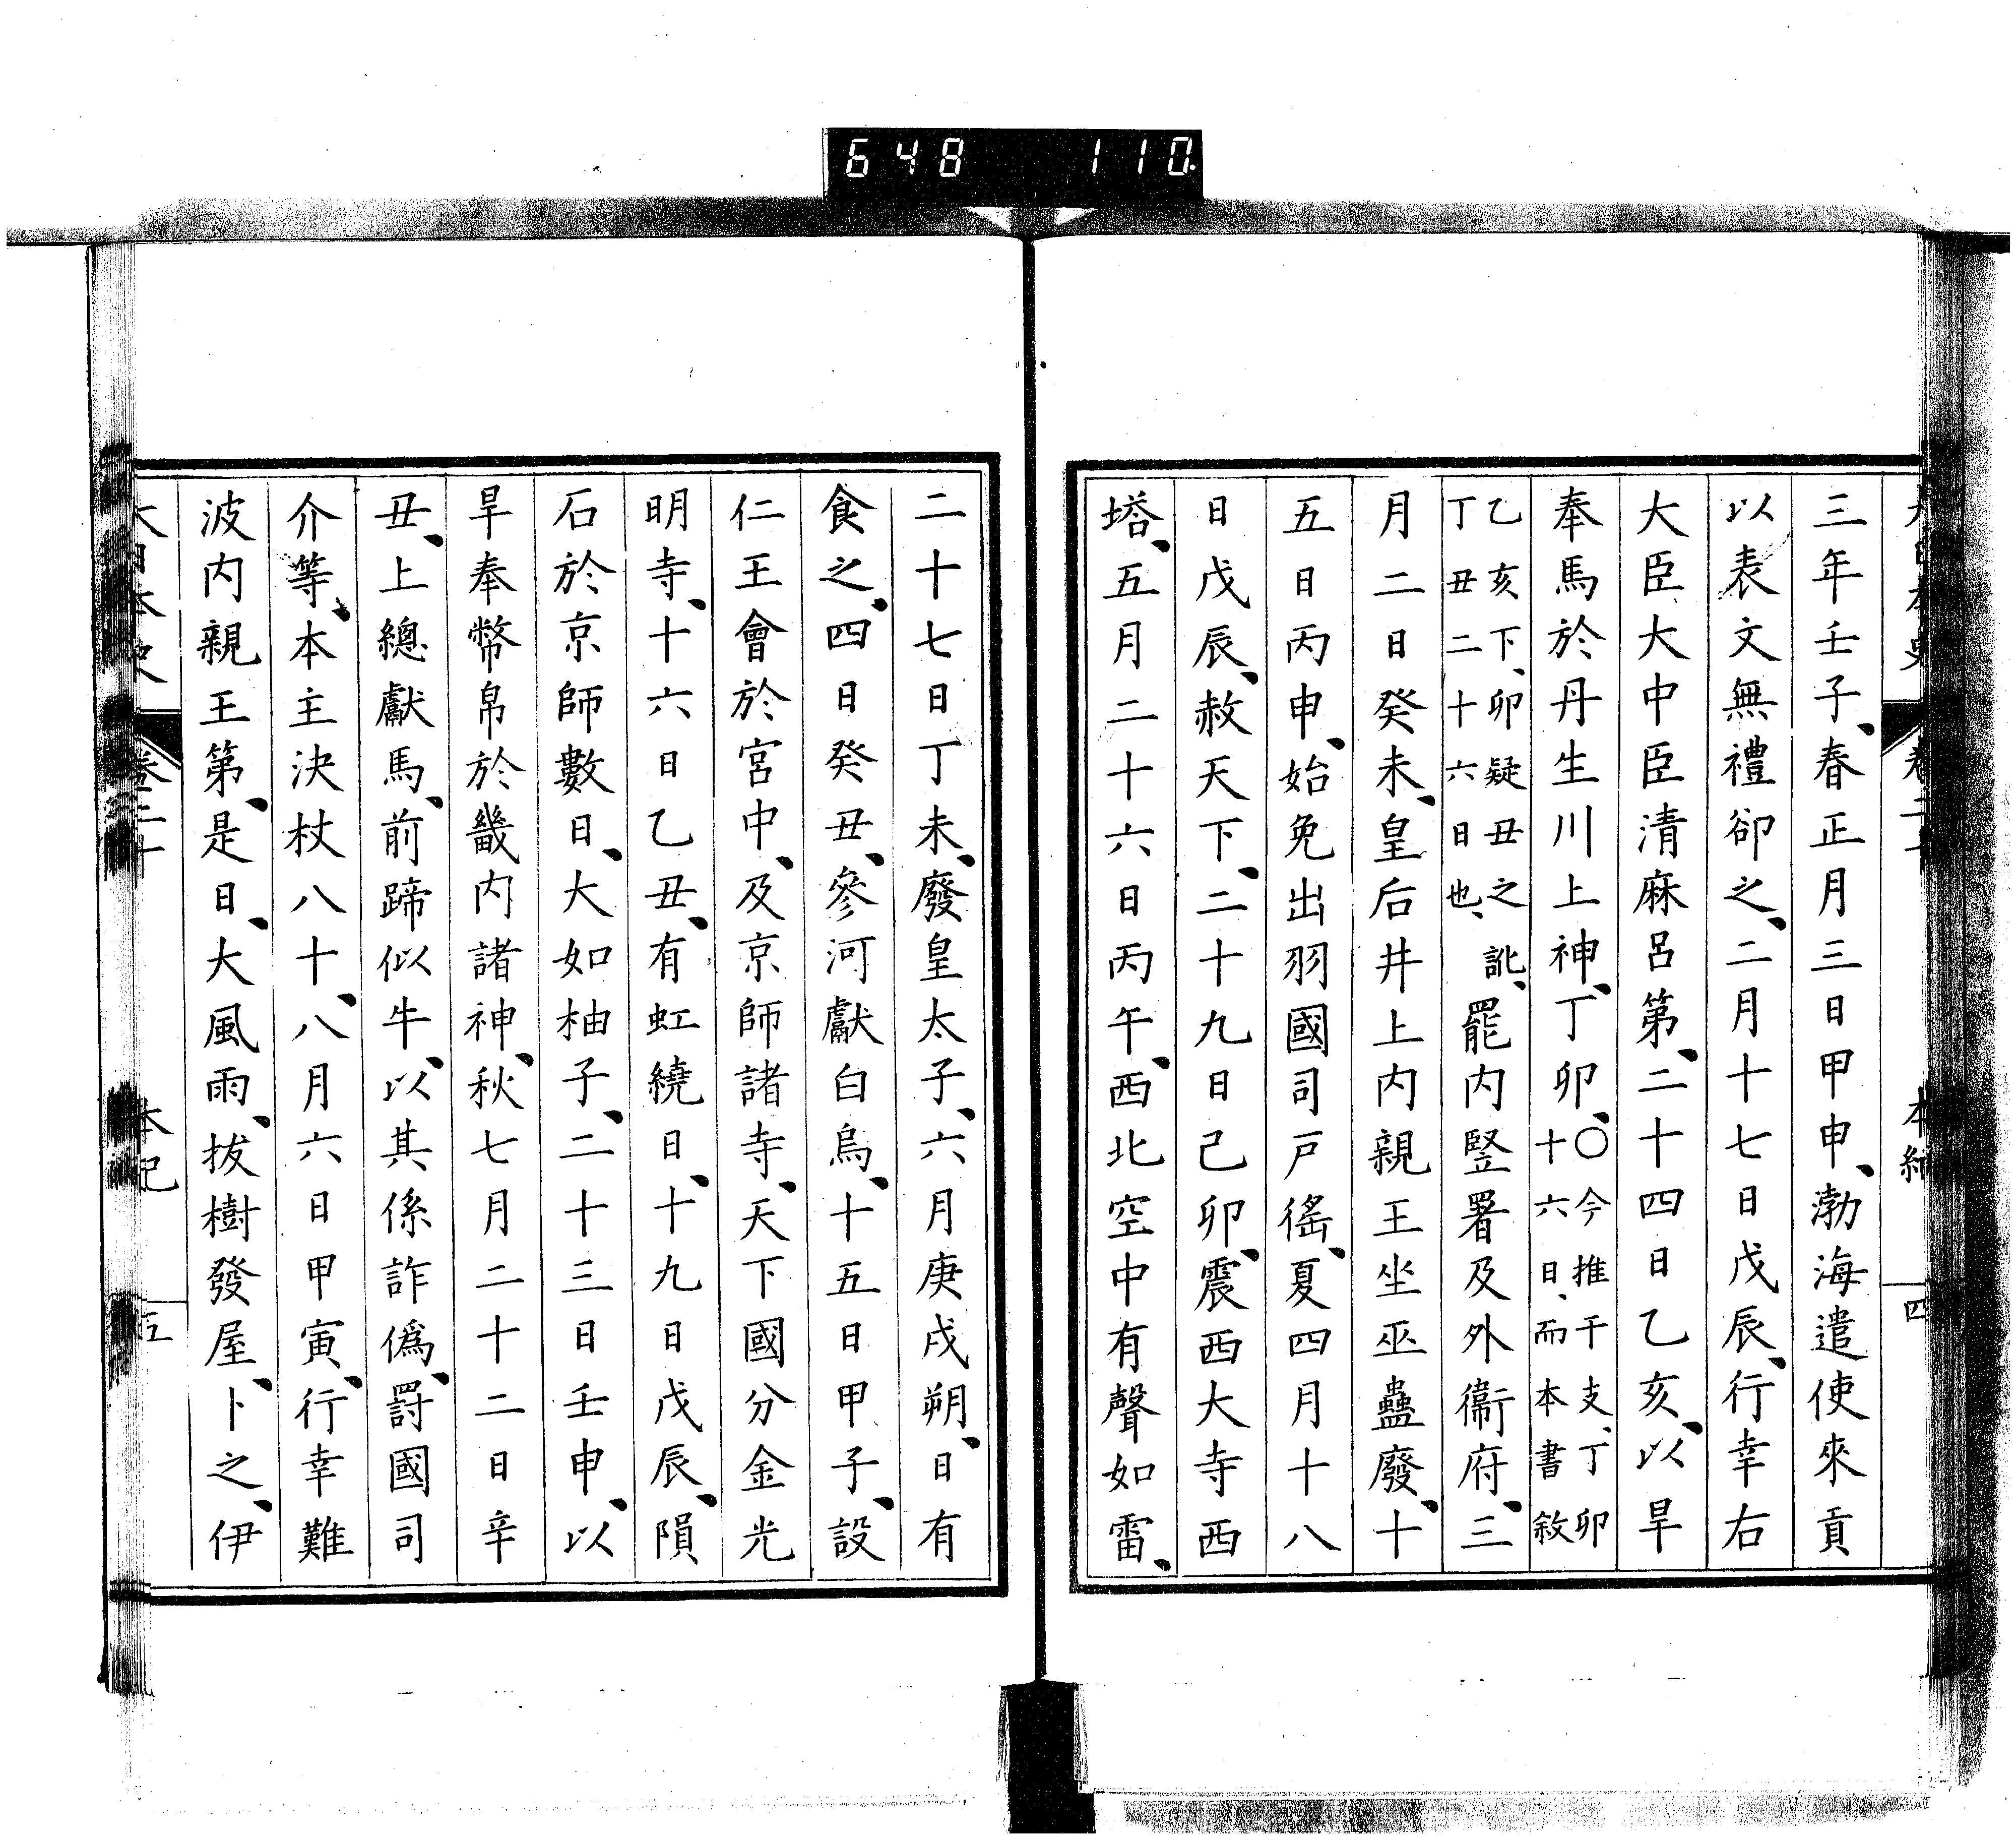 648 110
三年壬子、春正月三日甲申、渤海遣使來貢
以表文無禮卻之、二月十七日戊辰、行幸右
大臣大中臣清麻呂第、二十四日乙亥、以旱
奉馬於丹生川上神、丁卯、〇今推干支、丁卯十六日、而本書敘
乙亥下、卯疑丑之訛、丁丑二十六日也、罷内竪署及外衞府、三
月二日癸未、皇后井上内親王坐巫蠱廢、十
五日丙申、始免出羽國司戸徭、夏四月十八
日戊辰、赦天下、二十九日己卯、震西大寺西
塔、五月二十六日丙午、西北空中有聲如雷、
二十七日丁未、廢皇太子、六月庚戌朔、日有
食之、四日癸丑、參河獻白烏、十五日甲子、設
仁王會於宮中、及京師諸寺、天下國分金光
明寺、十六日乙丑、有虹繞日、十九日戊辰、隕
石於京師數日、大如柚子、二十三日壬申、以
旱奉幣帛於畿内諸神、秋七月二十二日辛
丑、上總獻馬、前蹄似牛、以其係詐僞、罸國司
介等、本主決杖八十、八月六日甲寅、行幸難
波内親王第、是日、大風雨、拔樹發屋、卜之、伊
大日本史 卷三十 本紀 五